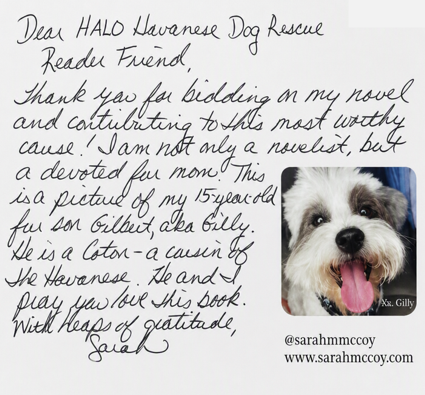 Dear HALO Havanese Dog Rescue
Reader Friend,
Thank you for bidding on my novel
and contributing to this most worthy
cause! I am not only a novelist, but
a devoted fur mom! This
is a picture of my 15-year-old
fur son Gilbert, aka Gilly.
He is a Coton - a cousin of
the Havanese. He and I
pray you love this book.
With heaps of gratitude,
Sarah
Xx, Gilly
@sarahmmccoy
www.sarahmccoy.com